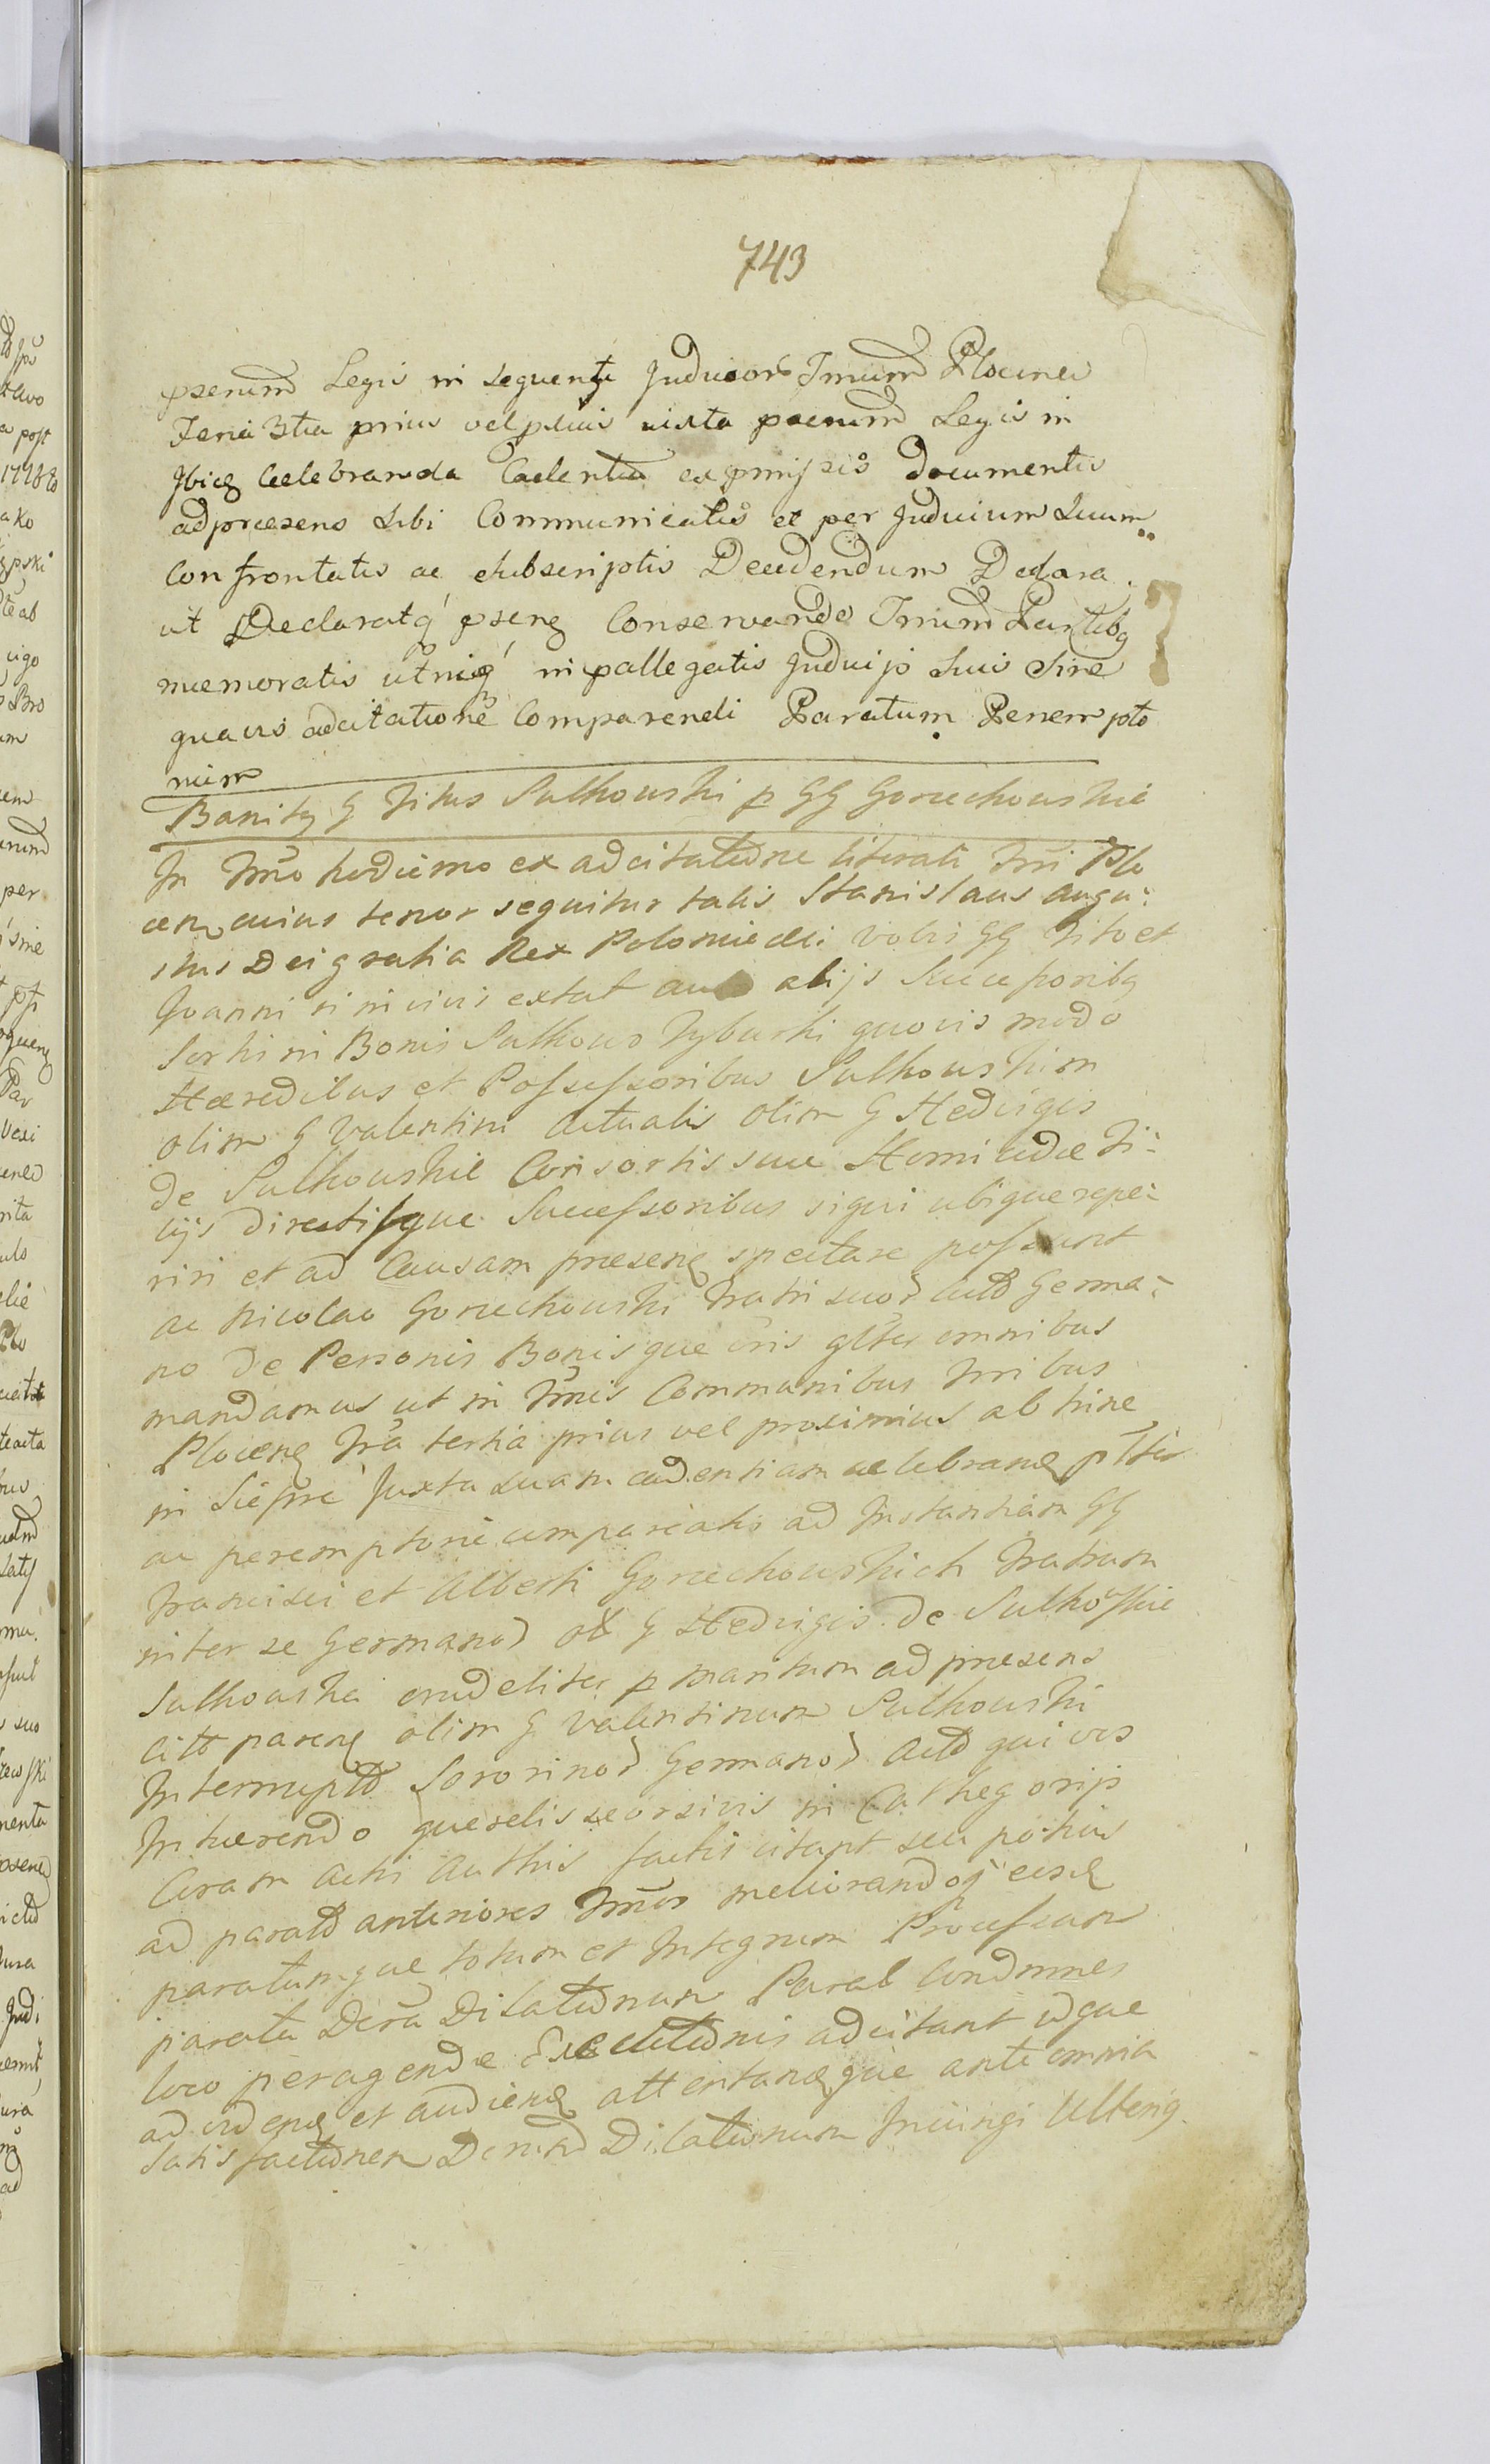 743
psenind Legis in sequenti Judicior Tmind Plocinei
Feria 3tia prius vel pluis iuxta psenind Legis in
Ibicq Celebranda Cadentia ex pmissis Documentis
ad praesens Sibi Communicatis et per Judicium Suum
Confrontatis ac Subscriptis Decidendum Declara
ut Declaratq pseng Conservando Tmind Partibq
memoratis in pallegatis Judicijs Suis Sine
quavis adcitatione Comparendi Paratum Perempto
rium
Banitq G Titus Sulkowski p GG Gorzechowskie
In Tmo hodierno ex adcitatione literali Tri Plo
cen cuius tenor sequitur talis Stanislaus Augu:
stus Dei gratia Rex Poloniae &ci Vobis GG Tito et
Joanni si in vivis extat alijs Successoribq
Sorti in Bonis Sulkowo Tyburski quovis modo
Haeredibus et Possessoribus Sulkowskim
olim G Valentini actualis olim G Hedvigis
de Sulkowskie Consortis suae Homicidae Fi:
lijs directisque Successoribus siqui ubique repe:
riri et ad Causam praeseng spectare possunt
ac Nicolao Gorzechowski Fratri suo Germa:
no de Personis Bonisque vris glter omnibus
mandamus ut in Tmis Communibus Trribus
Ploceng Fra tertia prius vel proximius ab hinc
in Siepre Juxta suam cadentiam celebrand pltr
ac peremptorie compareatis ad Instantiam GG
Francisci et Alberti Gorzechowskich Fratrum
inter se Germano ob G Hedvigis de Sulkowskie
Sulkowska crudeliter p maritum ad praesens
citt pareng olim G Valentinum Sulkowski
Interemptd Sororino Germano Actd qui vis
Inhaerendo querelis seorsivis in Cathegorijs
Coram Actis Authis factis citant seu potius
ad paratd anteriores Tmos meliorandoq eosq
paratumque totum et Integrum Processum
parata Dcra Dilationum Parat Condmnes
loco peragendae Executionis adcitant idque
ad vdend et audiend attentandque ante omnia
Satisfactionem Dcrnd Dilationum Iniungi Ulteng